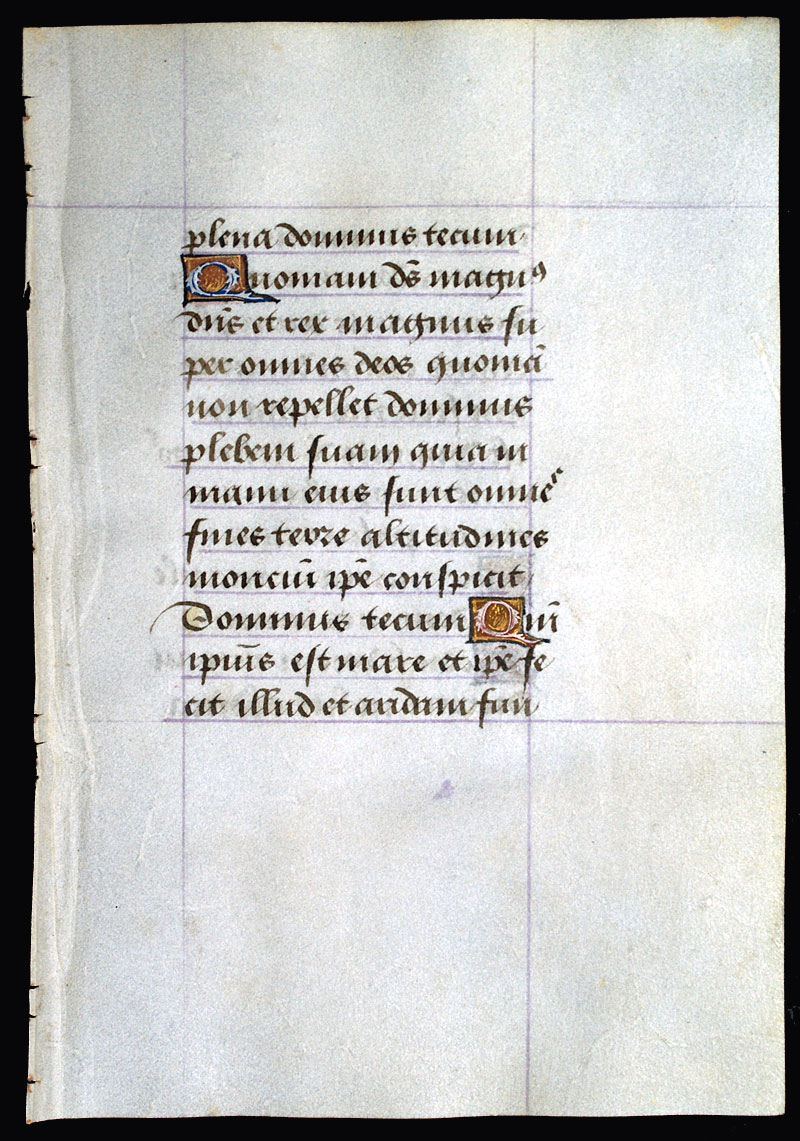 plena dominus tecum.
Quoniam dẽs magnꝰ
dñs et rex magnus su
per omnes deos quoniã
non repellet dominus
plebem suam quia in
manu eius sunt omnes
fines terre altitudines
monciũ ip̃e conspicit.
Dominus tecum Qm̃
ipiũs est mare et ip̃e fe
cit illud et aridam fun